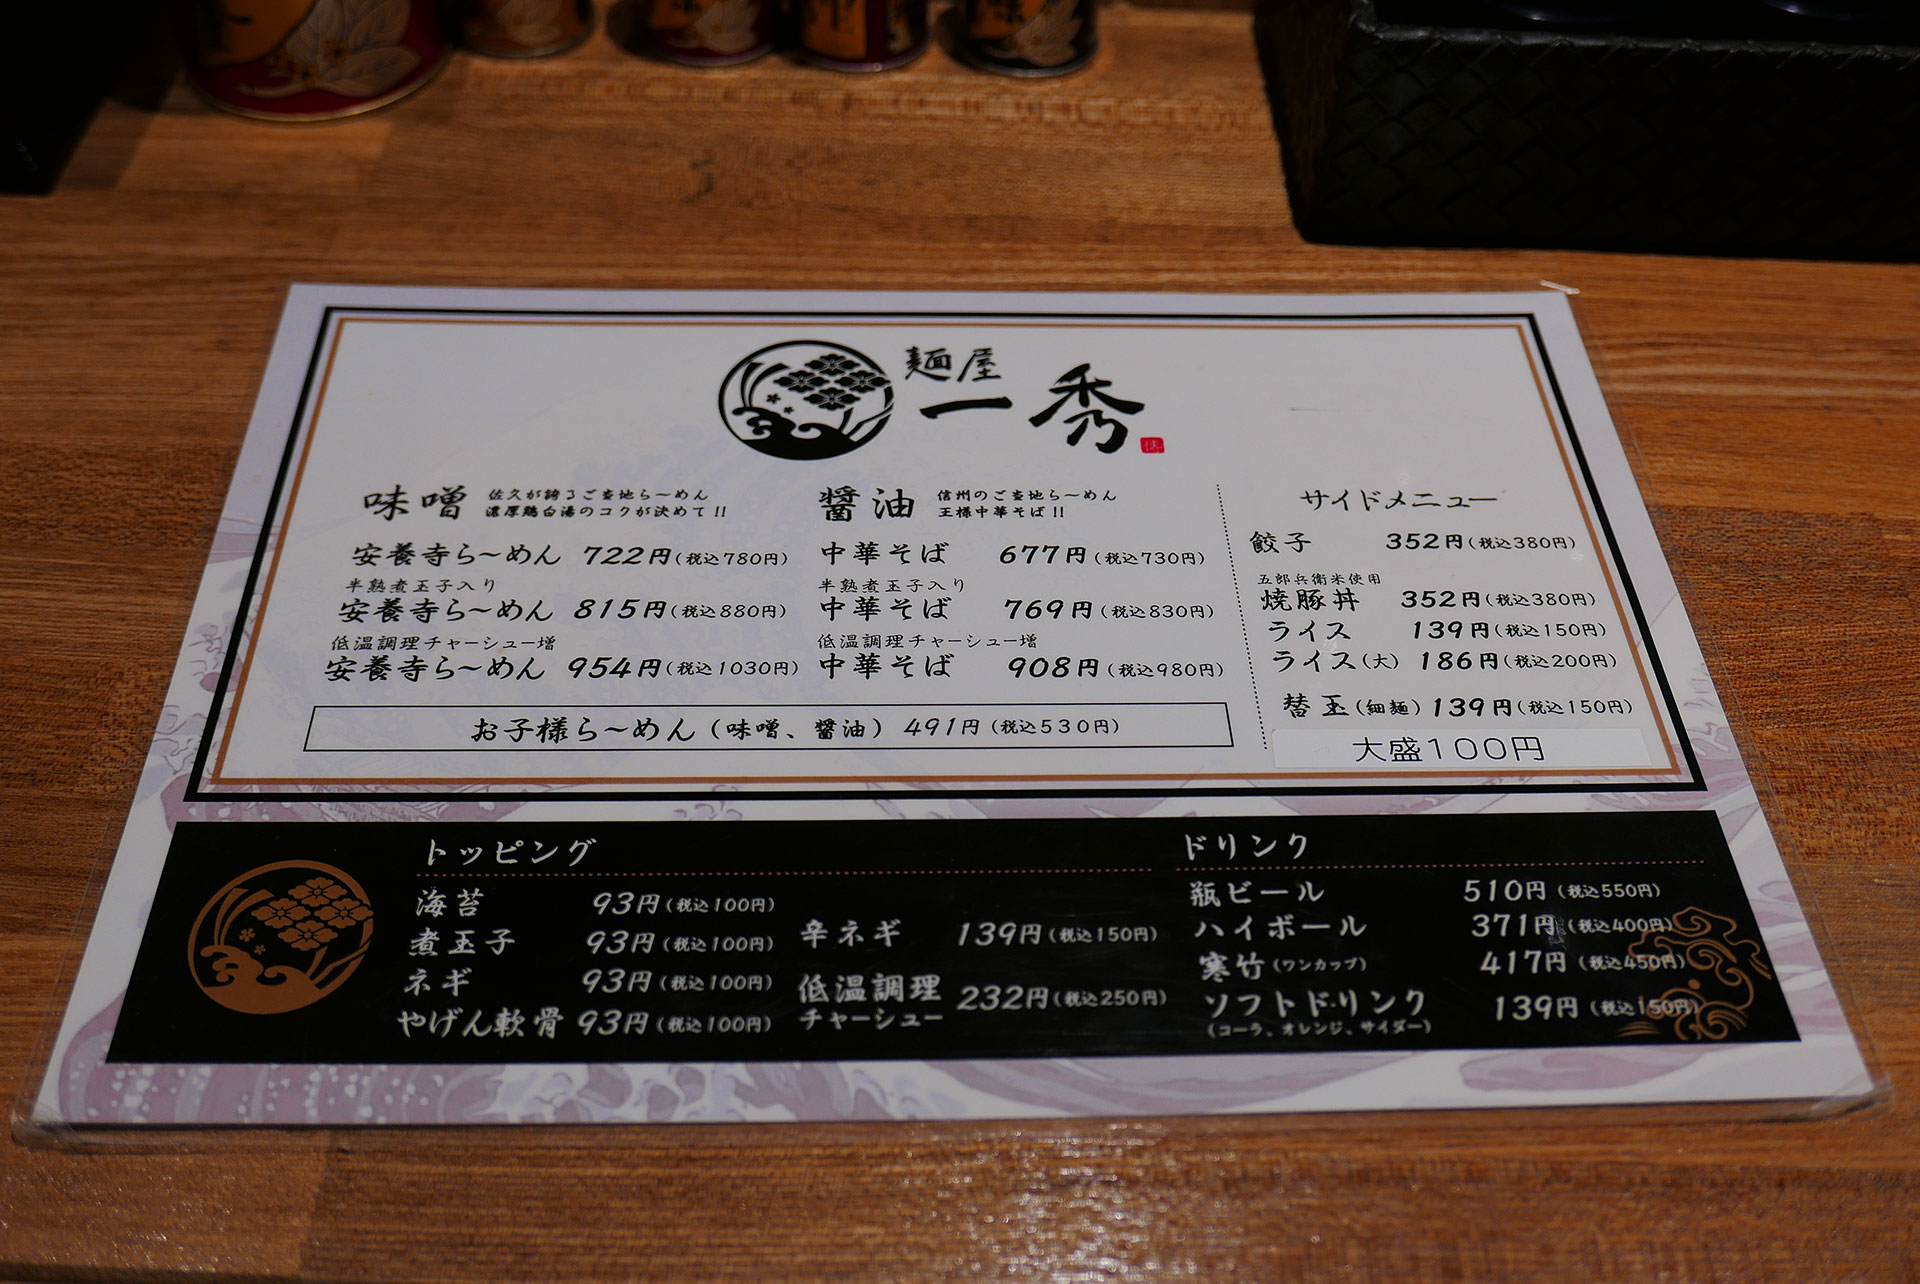 麺屋
一秀
味噌
佐久が誇るご当地ら～めん
濃厚鶏白湯のコクが決めて!!
安養寺ら～めん 722円(税込780円)
半熟煮玉子入り
安養寺ら～めん 815円(税込880円)
低温調理チャーシュー増
安養寺ら～めん 954円(税込1030円)
醤油
信州のご当地ら～めん
王様中華そば!!
中華そば 677円(税込730円)
半熟煮玉子入り
中華そば 769円(税込830円)
低温調理チャーシュー増
中華そば 908円(税込980円)
お子様ら～めん(味噌、醤油) 491円(税込530円)
サイドメニュー
餃子 352円(税込380円)
五郎兵衛米使用
焼豚丼 352円(税込380円)
ライス 139円(税込150円)
ライス(大) 186円(税込200円)
替玉(細麺) 139円(税込150円)
大盛100円
トッピング
海苔 93円(税込100円)
煮玉子 93円(税込100円)
ネギ 93円(税込100円)
やげん軟骨 93円(税込100円)
辛ネギ 139円(税込150円)
低温調理
チャーシュー 232円(税込250円)
ドリンク
瓶ビール 510円(税込550円)
ハイボール 371円(税込400円)
寒竹(ワンカップ) 417円(税込450円)
ソフトドリンク 139円(税込150円)
(コーラ、オレンジ、サイダー)